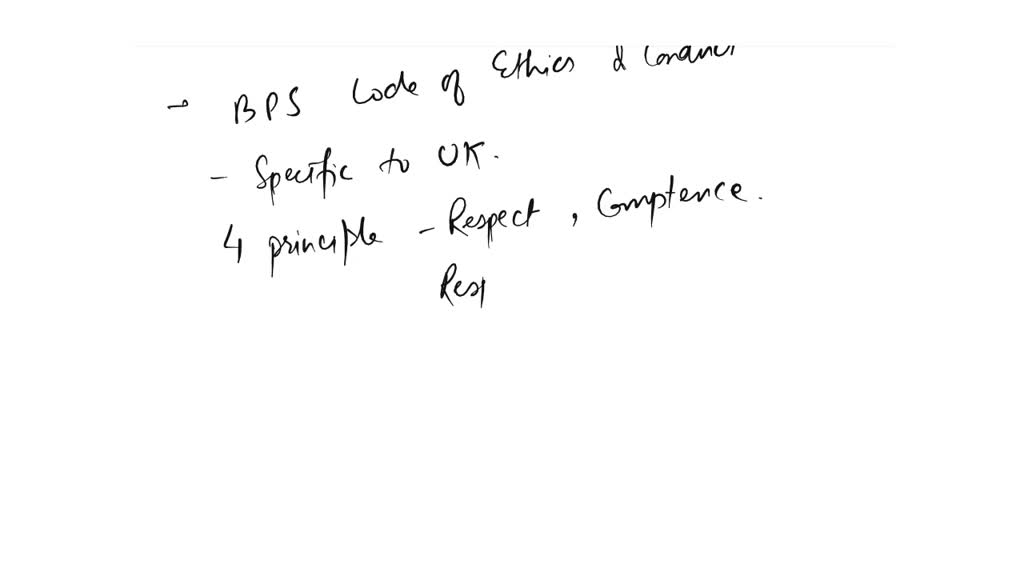 → BPS Code of Ethics & Conduct
- Specific to UK.
4 principle - Respect, Comptence.
Resp